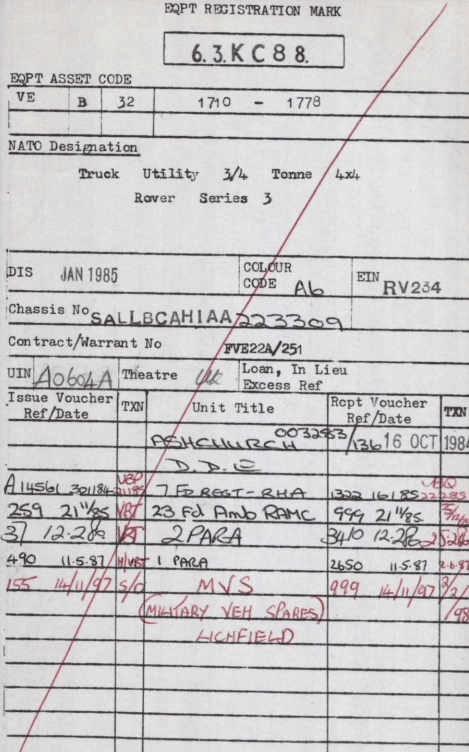 EQPT REGISTRATION MARK
6.3.KC88.
EQPT ASSET CODE
VE B 32 1710 - 1778
NATO Designation
Truck Utility 3/4 Tonne 4x4
Rover Series 3
DIS JAN 1985 COLOUR CODE A6 EIN RV234
Chassis No SALLBCAH1AA223309
Contract/Warrant No FVE22A/251
UIN A0604A Theatre UK Loan, In Lieu Excess Ref
Issue Voucher Ref/Date TXN Unit Title Rcpt Voucher Ref/Date TXN
ASHCHURCH 003283/136 16 OCT 1984
D.D.E
A14561 301184 7 FD REGT - RHA 1322 16185
259 21 11/85 VBT 23 Fd Amb RAMC 999 21 11/85
37 12.2.86 2 PARA 3410 12.2.86
490 11.5.87 1 PARA 2650 11.5.87 2.6.87
155 14/11/97 S/O MVS 999 14/11/97 3/2/98
(MILITARY VEH SPARES)
LICHFIELD